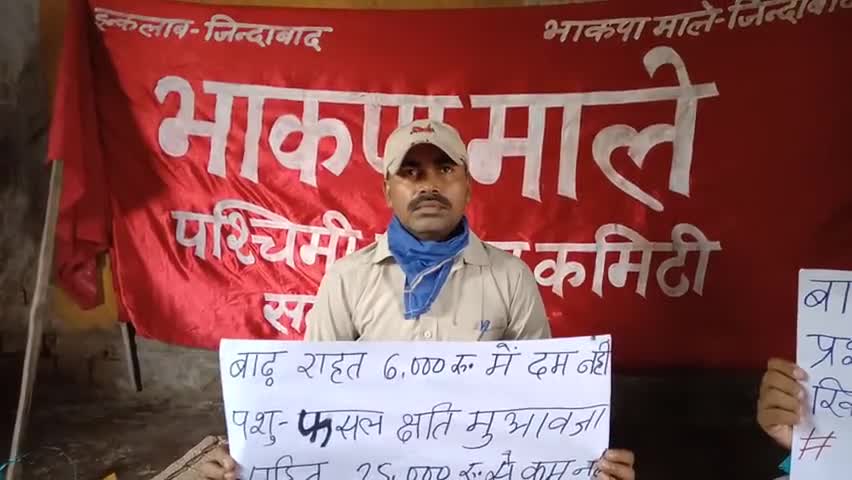 इन्कलाब-जिन्दाबाद
भाकपा माले-जिन्दाबाद
भाकपा माले
पश्चिमी कमिटी
बाढ़ राहत 6,000 रु. में दम नहीं
पशु-फसल क्षति मुआवजा
सहित 25,000 रु. से कम
बा
#